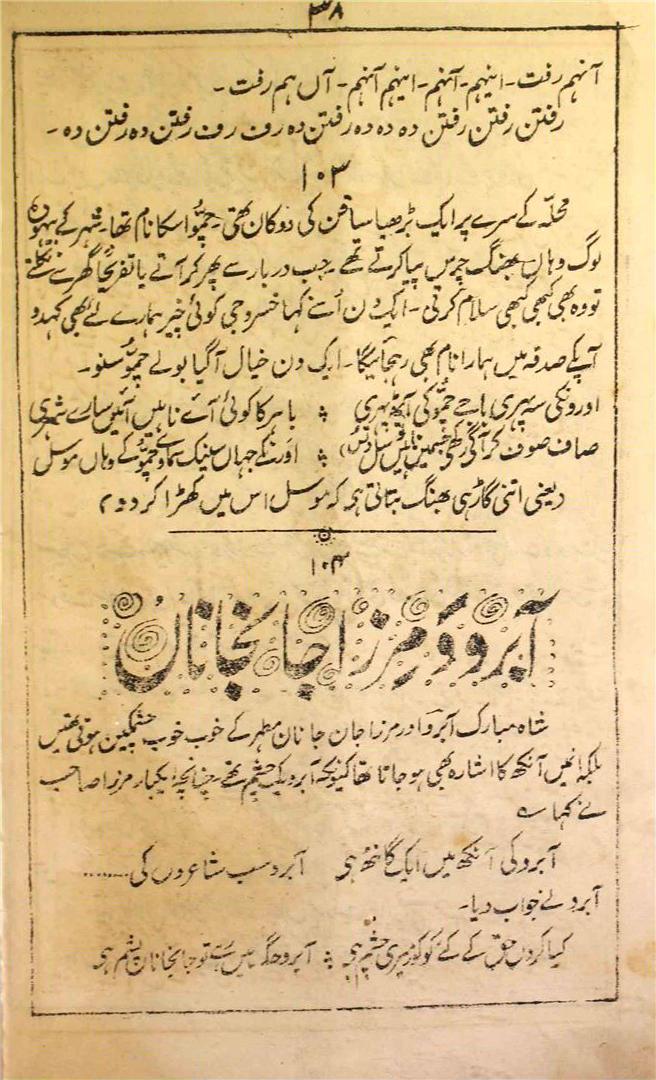 ۳۸
آنہم رفت۔ اینہم۔ آنہم۔ اینہم آنہم۔ آں ہم رفت۔
رفتن رفتن رفتن دہ دہ دہ رفتن دہ رف رف رفتن دہ رفتن دہ۔
۱۰۳
محلہ کے سرے پر ایک بڑھیا ساقن کی دوکان تھی۔ چمّو اسکا نام تھا۔ شہر کے بیہودہ
لوگ وہاں بھنگ چرس پیا کرتے تھے۔ جب دربار سے پھر کر آتے یا تفریحاً گھر سے نکلتے
تو وہ بھی کبھی کبھی سلام کرتی۔ ایک دن اُسنے کہا خسرو جی کوئی چیز ہمارے لئے بھی کہدو
آپکے صدقہ میں ہمارا نام بھی رہجائیگا۔ ایک دن خیال آگیا بولے چمّو سنو۔
اورونکی سہ پہری باجے چمّو کی آٹھ پہری ؞ باہر کا کوئی آئے ناہیں آئیں سارے شہری
صاف صوف کر آگے رکھے جسمیں ناہیں توسل ؞ اورنکے جہاں سینک سماوے چمّو کے وہاں موسل
(یعنی اتنی گاڑہی بھنگ بناتی ہی کہ موسل اس میں کھڑا کردو)
۱۰۴
آبرو و مرزا جانجاناں
شاہ مبارک آبرو اور مرزا جان جانان مظہر کے خوب خوب چشمکیں ہوتی تھیں
بلکہ انمیں آنکھ کا اشارہ بھی ہو جاتا تھا کیونکہ آبرو یک چشم تھے۔ چنانچہ ایکبار مرزا صاحب
نے کہا ؎
آبرو کی آنکھ میں ایک گانٹھ ہی آبرو سب شاعروں کی........
آبرو نے جواب دیا۔
کیا کروں حق کے کئے کو کور میری چشم ہی ؞ آبرو جگ میں رہے تو جانجاناں پشم ہی